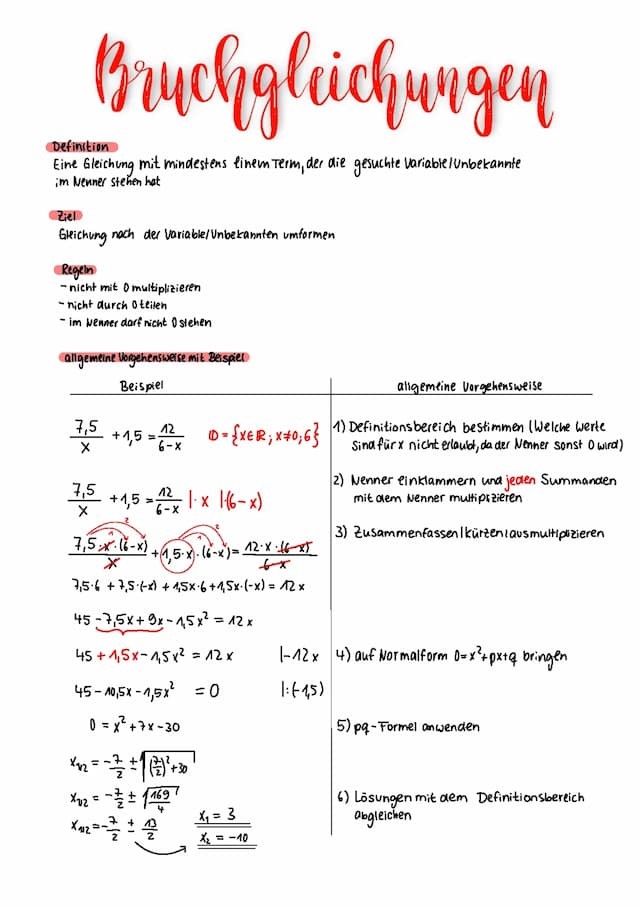 Bruchgleichungen
Definition
Eine Gleichung mit mindestens Einem Term, der die gesuchte Variable/Unbekannte
im Nenner stehen hat
Ziel
Gleichung nach der Variable/Unbekannten umformen
Regeln
- nicht mit 0 multiplizieren
- nicht durch 0 teilen
- im Nenner darf nicht 0 stehen
allgemeine Vorgehensweise mit Beispiel
Beispiel
allgemeine Vorgehensweise
7,5/x + 1,5 = 12/6-x   D = {x∈ℝ; x≠0;6}
1) Definitionsbereich bestimmen (Welche Werte
sind für x nicht erlaubt, da der Nenner sonst 0 wird)
7,5/x + 1,5 = 12/6-x |·x |·(6-x)
2) Nenner einklammern und jeden Summanden
mit dem Nenner multiplizieren
7,5·x·(6-x)/x + 1,5·x·(6-x) = 12·x·(6-x)/6-x
3) Zusammenfassen/kürzen/ausmultiplizieren
7,5·6 + 7,5·(-x) + 1,5x·6 + 1,5x·(-x) = 12x
45 - 7,5x + 9x - 1,5x² = 12x
45 + 1,5x - 1,5x² = 12x |-12x
4) auf Normalform 0=x²+px+q bringen
45 - 10,5x - 1,5x² = 0 |:(-1,5)
0 = x² + 7x - 30
5) pq-Formel anwenden
x1/2 = -7/2 ± √(7/2)² + 30
x1/2 = -7/2 ± √169/4
6) Lösungen mit dem Definitionsbereich
abgleichen
x1/2 = -7/2 ± 13/2
x₁ = 3
x₂ = -10